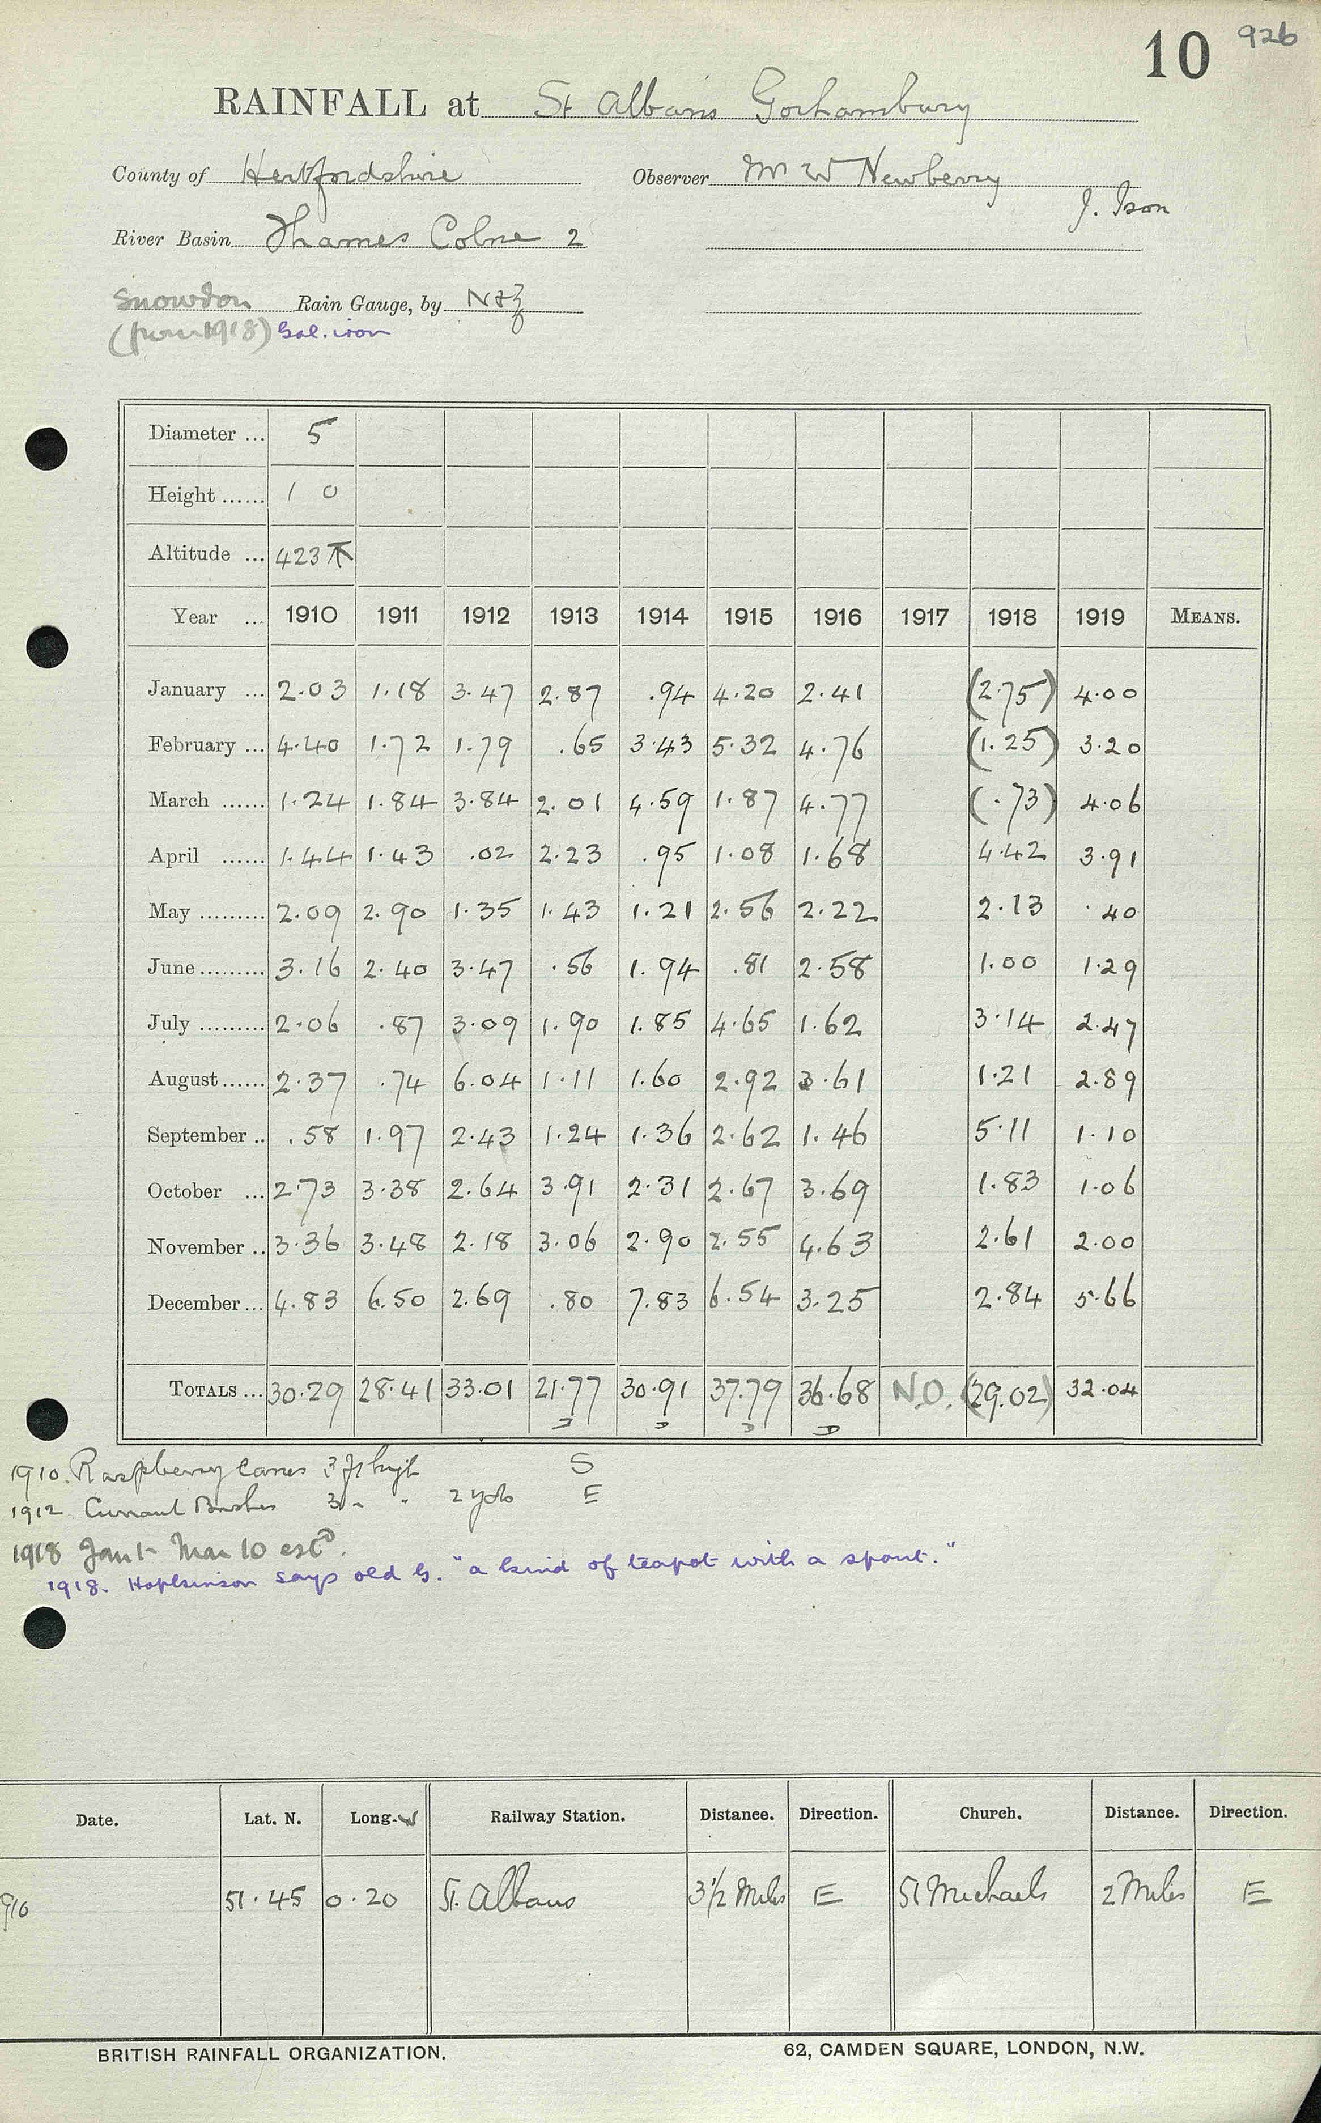 10 926
RAINFALL at St Albans Gorhambury
County of Hertfordshire Observer Mr W Newberry
J. Ison
River Basin Thames Colne 2
Snowdon Rain Gauge, by N & Z
(from 1918) Gal. iron
Diameter ... 5
Height ...... 1 0
Altitude ... 423
Year ... 1910 1911 1912 1913 1914 1915 1916 1917 1918 1919 MEANS.
January ... 2.03 1.18 3.47 2.87 .94 4.20 2.41 (2.75) 4.00
February ... 4.40 1.72 1.79 .65 3.43 5.32 4.76 (1.25) 3.20
March ...... 1.24 1.84 3.84 2.01 4.59 1.87 4.77 (.73) 4.06
April ...... 1.44 1.43 .02 2.23 .95 1.08 1.68 4.42 3.91
May ......... 2.09 2.90 1.35 1.43 1.21 2.56 2.22 2.13 .40
June ......... 3.16 2.40 3.47 .56 1.94 .81 2.58 1.00 1.29
July ......... 2.06 .87 3.09 1.90 1.85 4.65 1.62 3.14 2.47
August ...... 2.37 .74 6.04 1.11 1.60 2.92 3.61 1.21 2.89
September .. .58 1.97 2.43 1.24 1.36 2.62 1.46 5.11 1.10
October ... 2.73 3.38 2.64 3.91 2.31 2.67 3.69 1.83 1.06
November .. 3.36 3.48 2.18 3.06 2.90 2.55 4.63 2.61 2.00
December ... 4.83 6.50 2.69 .80 7.83 6.54 3.25 2.84 5.66
TOTALS ... 30.29 28.41 33.01 21.77 30.91 37.79 36.68 N.O. (29.02) 32.04
1910. Raspberry Canes 3 ft high S
1912 Currant Bushes 3 " " 2 yds E
1918 Jan 1 - Mar 10 estd.
1918. Hopkinson says old G. "a kind of teapot with a spout."
Date. Lat. N. Long. W Railway Station. Distance. Direction. Church. Distance. Direction.
910 51.45 0.20 St. Albans 3 1/2 Miles E St Michaels 2 Miles E
BRITISH RAINFALL ORGANIZATION. 62, CAMDEN SQUARE, LONDON, N.W.